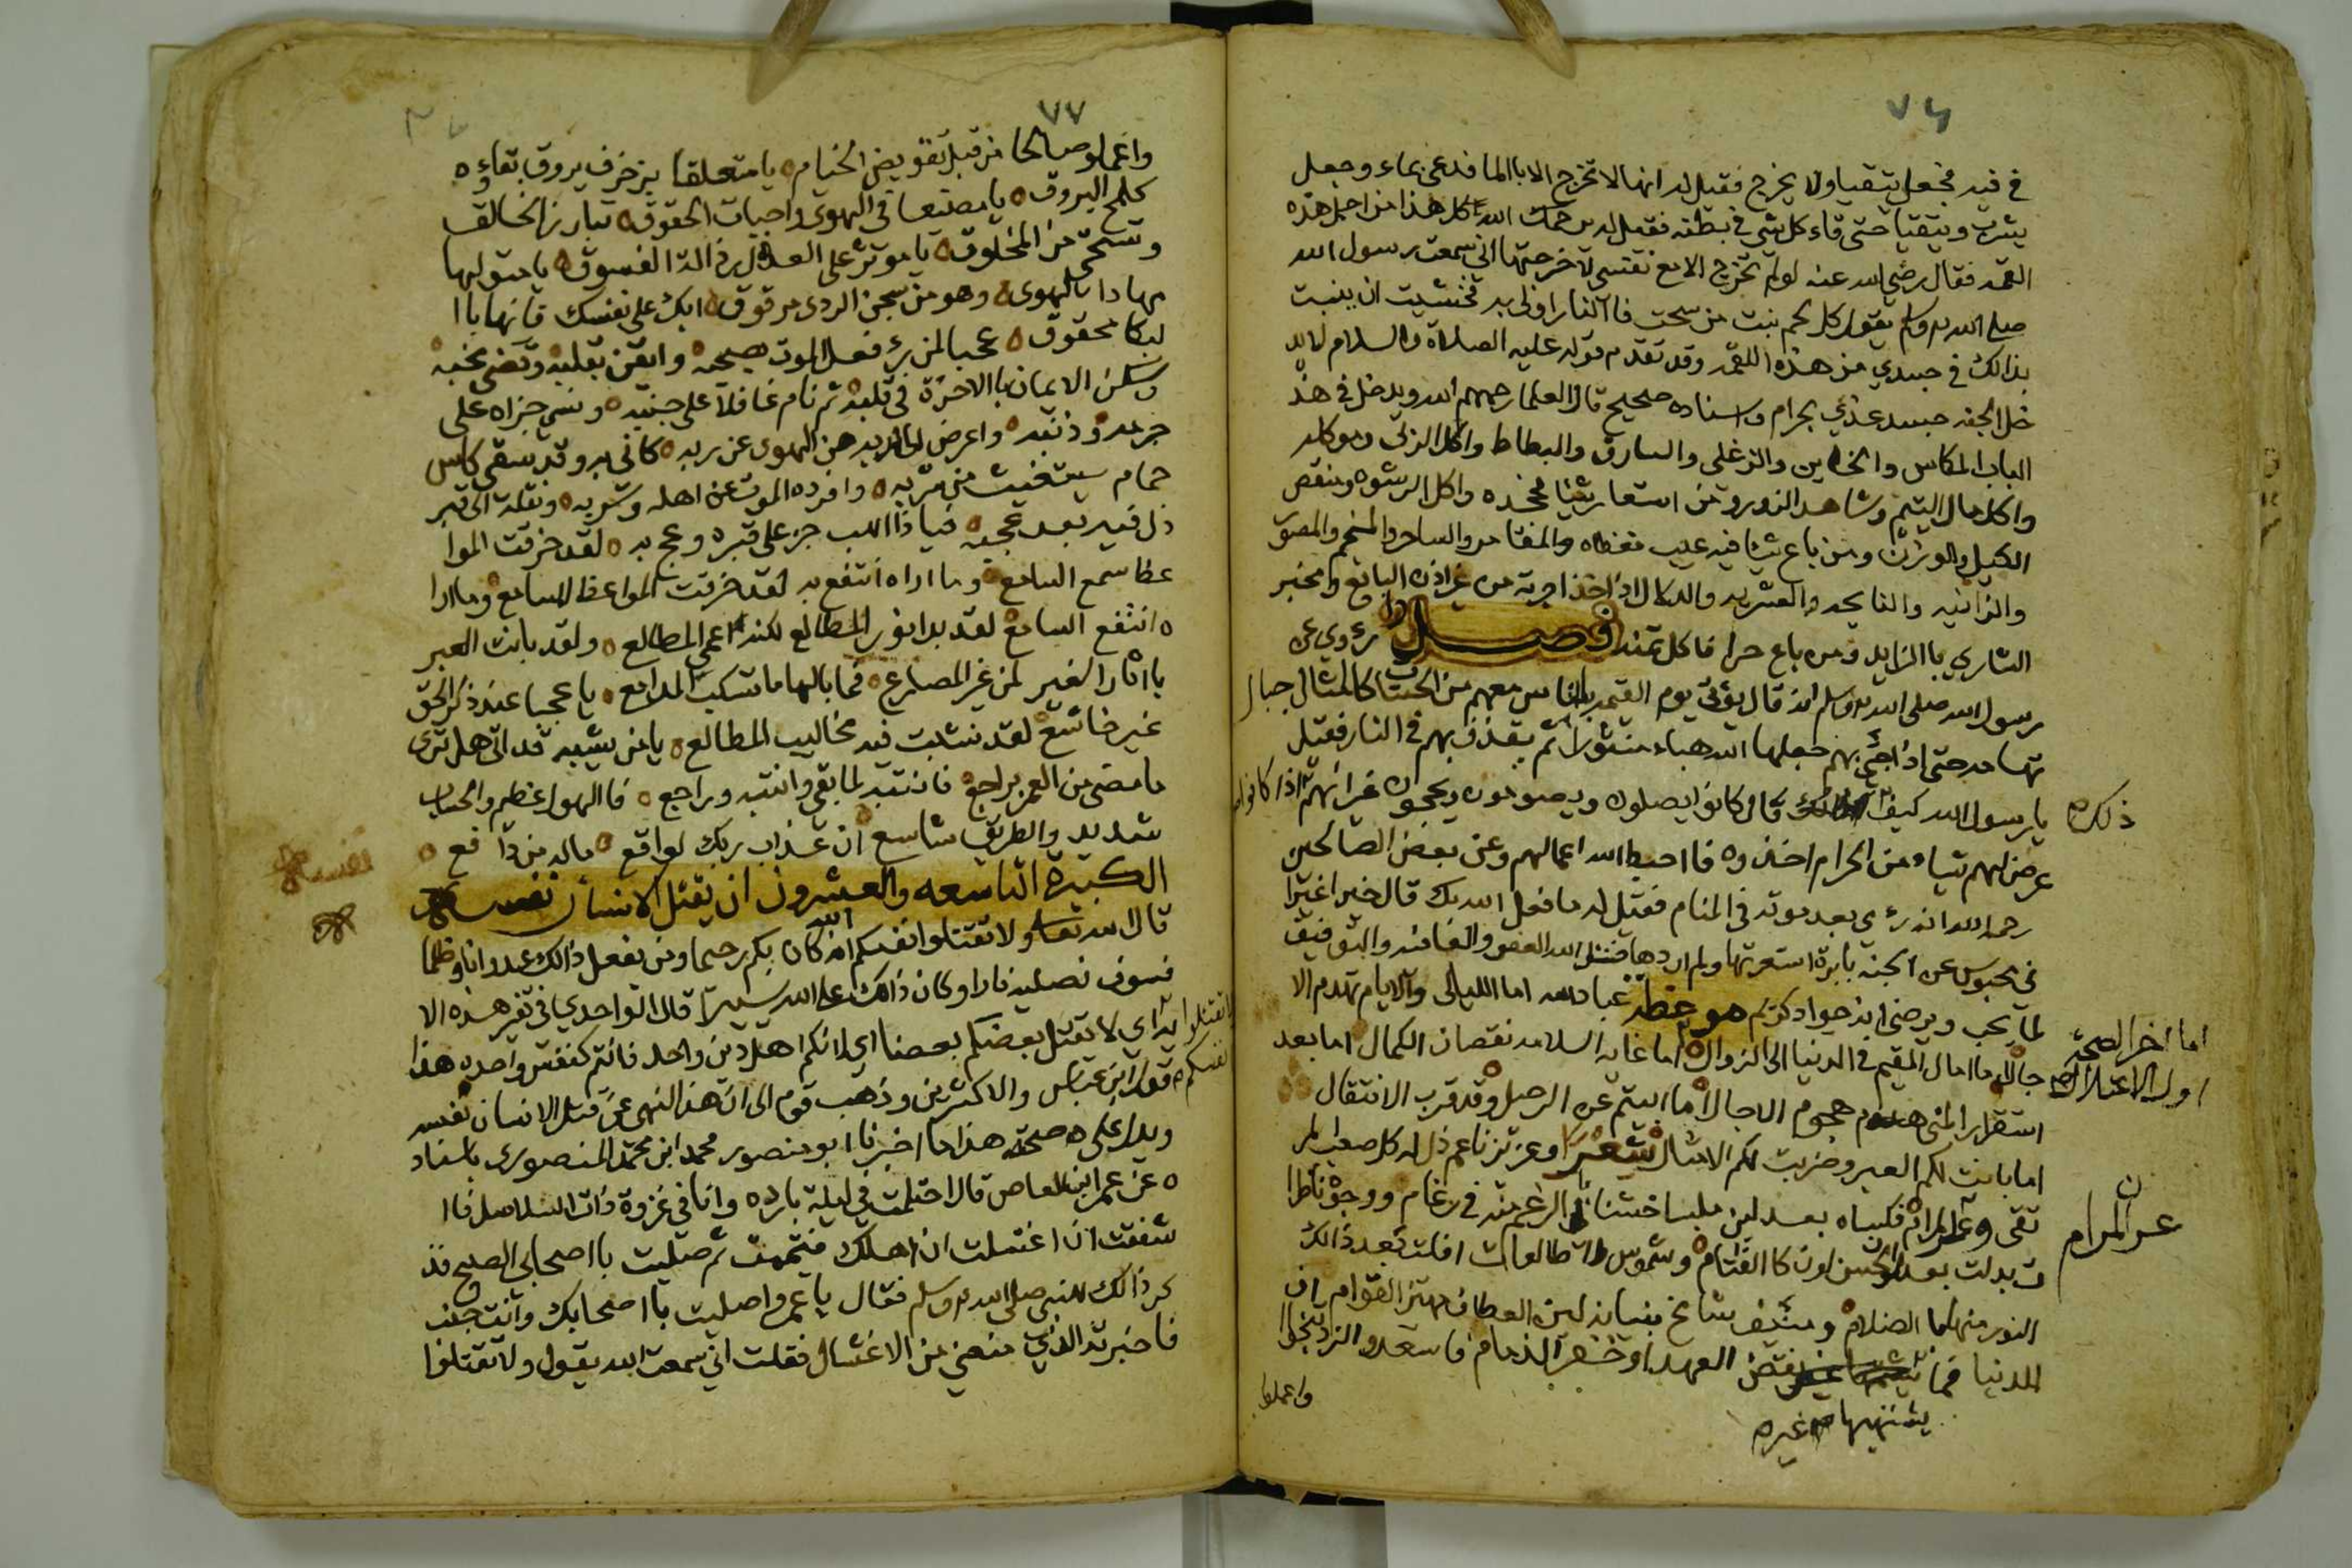 ٧٦
في فيه فجعل يتقيا ولا يخرج فقيل له انها لا تخرج الا باالما فدعى بماء وجعل
يشرب ويتقيا حتى قاء كل شي في بطنه فقيل له يرحمك الله كل هذا من اجل هذه
القمه فقال رضي الله عنه لو لم تخرج الا مع نفسي لاخرجتها اني سمعت رسول الله
صلى الله عليه وسلم يقول كل لحم نبت من سحت فاالنار اولى به فخشيت ان ينبت
بذالك في جسدي من هذه اللقمه وقد تقدم قوله عليه الصلاة والسلام لا يد
خل الجنه جسد غذي بحرام واسناده صحيح قال العلما رحمهم الله ويدخل في هذ
الباب المكاس والخاين والزغلي والسارق والبطاط واكل الربى وموكله
واكل مال اليتيم وشاهد الزور ومن استعار شيا فجحده واكل الرشوه ومنقص
الكيل والوزن ومن باع شيا فيه عيب فغطاه والمقامر والساحر والمنجم والمصور
والزانيه والنايحه والعشريه والدلال اذا اخذ اجرته من غير اذن البائع ومخبر
الشاري باالزايد ومن باع حرا فاكل ثمنه فصل روي عن
رسول الله صلى الله عليه وسلم انه قال يؤتى يوم القيمه باناس معهم من الحسنات كامثال جبال
تهامه حتى اذا جئ بهم جعلها الله هباء منثورا ثم يقذف بهم في النار فقيل
يا رسول الله كيف ذلك قال كانوا يصلون ويصومون ويحجون غير انهم اذا كانوا
ذلك
عرض لهم شيا من الحرام اخذوه فااحبط الله اعمالهم وعن بعض الصالحين
رحمه الله انه رؤي بعد موته في المنام فقيل له ما فعل الله بك قال خيرا غير ا
ني محبوس عن الجنه باابرة استعرتها ولم اردها فنسئل الله العفو والعافيه والتوفيق
لما يحب ويرضى انه جواد كريم موعظه عباد الله اما الليالي والايام تهدم الا
جال اما مال المقيم في الدنيا الى الزوال اما غاية السلامه نقصان الكمال اما بعد
اما اخر الصحة
اول الاعتلال
استقرار المنى هجوم الاجال اما انبيتم عن الرحيل وقد قرب الانتقال
اما بانت لكم العبر وضربت لكم الامثال شعر او عزيز ناعم ذل له كل صعب المر
تقى وعر المرام فكساه بعد لين ملبسا خشنا الرغم منه في رغام ووجوه ناظرا
ن
عر المرام
ت بدلت بعد لون الحسن لونا كاالقتام وشموس طالعات افلت بعد ذالك
النور منها باالضلام ومنيف شامخ بنيانه لين العطاف مهتز القوام اف
للدنيا فما نقض العهد او خفر الذمام فاستعدوا الزاد تنجوا
شيمتها غير
واعملوا
٧٧
واعملو صالحا من قبل تقويض الخيام يا متعلقا بزخرف يروق بقاؤه
كلمح البروق يا مضيعا في الهوى واجبات الحقوق تبارز الخالق
وتستحي من المخلوق يا موثر على العدل رذالة الفسوق يا متولها
مهادا بالهوى وهو من سجن الردى مرقوق ابك على نفسك فانها باا
لبكا محقوق عجبا لمن رئ فعل الموت بصحبه وايقن بقلبه وقضى نحبه
وسكن الايمان باالاخرة في قلبه ثم نام غافلا على جنبه ونسي جزاه على
جرمه وذنبه واعرض الى لذيذ من الهوى عن ربه كاني به وقد سقي كاس
حمام سيتغيث من شربه وافرده الموت عن اهله وسربه ونقله الى قبر
ذل فيه بعد عجبه فيا ذا اللب جز على قبره وعج به لقد خرقت الموا
عظ سمع السامع وما اراه انتفع به لقد خرقت المواعظ المسامع وما ارا
ه انتفع السامع لقد بدا نور المطالع لكنه اعمى المطالع ولقد بانت العبر
باا ثار الغير لمن غير المصارع فما بالها ما تسكب المدامع يا عجبا عند ذكر الحق
غير خاشع لقد نشبت فيه مخاليب المطالع يا من يشيبه قد اتى هل ترى
ما مضى من العمر براجع فانتبه لما بقي وانته وراجع فاالهول عظيم والحساب
شديد والطريق شاسع ان عذاب ربك لواقع ماله من دافع
الكبيرة التاسعه والعشرون ان يقتل الانسان نفسه
نفسه
قال الله تعا ولا تقتلوا انفسكم ان الله كان بكم رحيما ومن يفعل ذالك عدوانا وظلما
فسوف نصليه نارا وكان ذالك على الله يسيرا قال الواحدي في تفير هذه الا
ية اي لا يقتل بعضكم بعضا اي لانكم اهل دين واحد فانتم كنفس واحده هذا
لا تقتلوا
انفسكم
قول ابن عباس والاكثرين وذهب قوم الى ان هذا النهي عن قتل الانسان نفسه
ويدل على صحته هذا ما اخبرنا ابو منصور محمد ابن محمد المنصوري باسناد
ه عن عمر ابن العاص قال احتلمت في ليلة بارده وانا في غزوة ذات السلاسل فاا
شفقت ان اغتسلت ان اهلك فتيممت ثم صليت باا صحابي الصبح فذ
كر ذالك للنبي صلى الله عليه وسلم فقال يا عمر واصليت باا صحابك وانت جنب
فاخبرته الذي منعني من الاغتسال فقلت اني سمعت الله يقول ولا تقتلوا